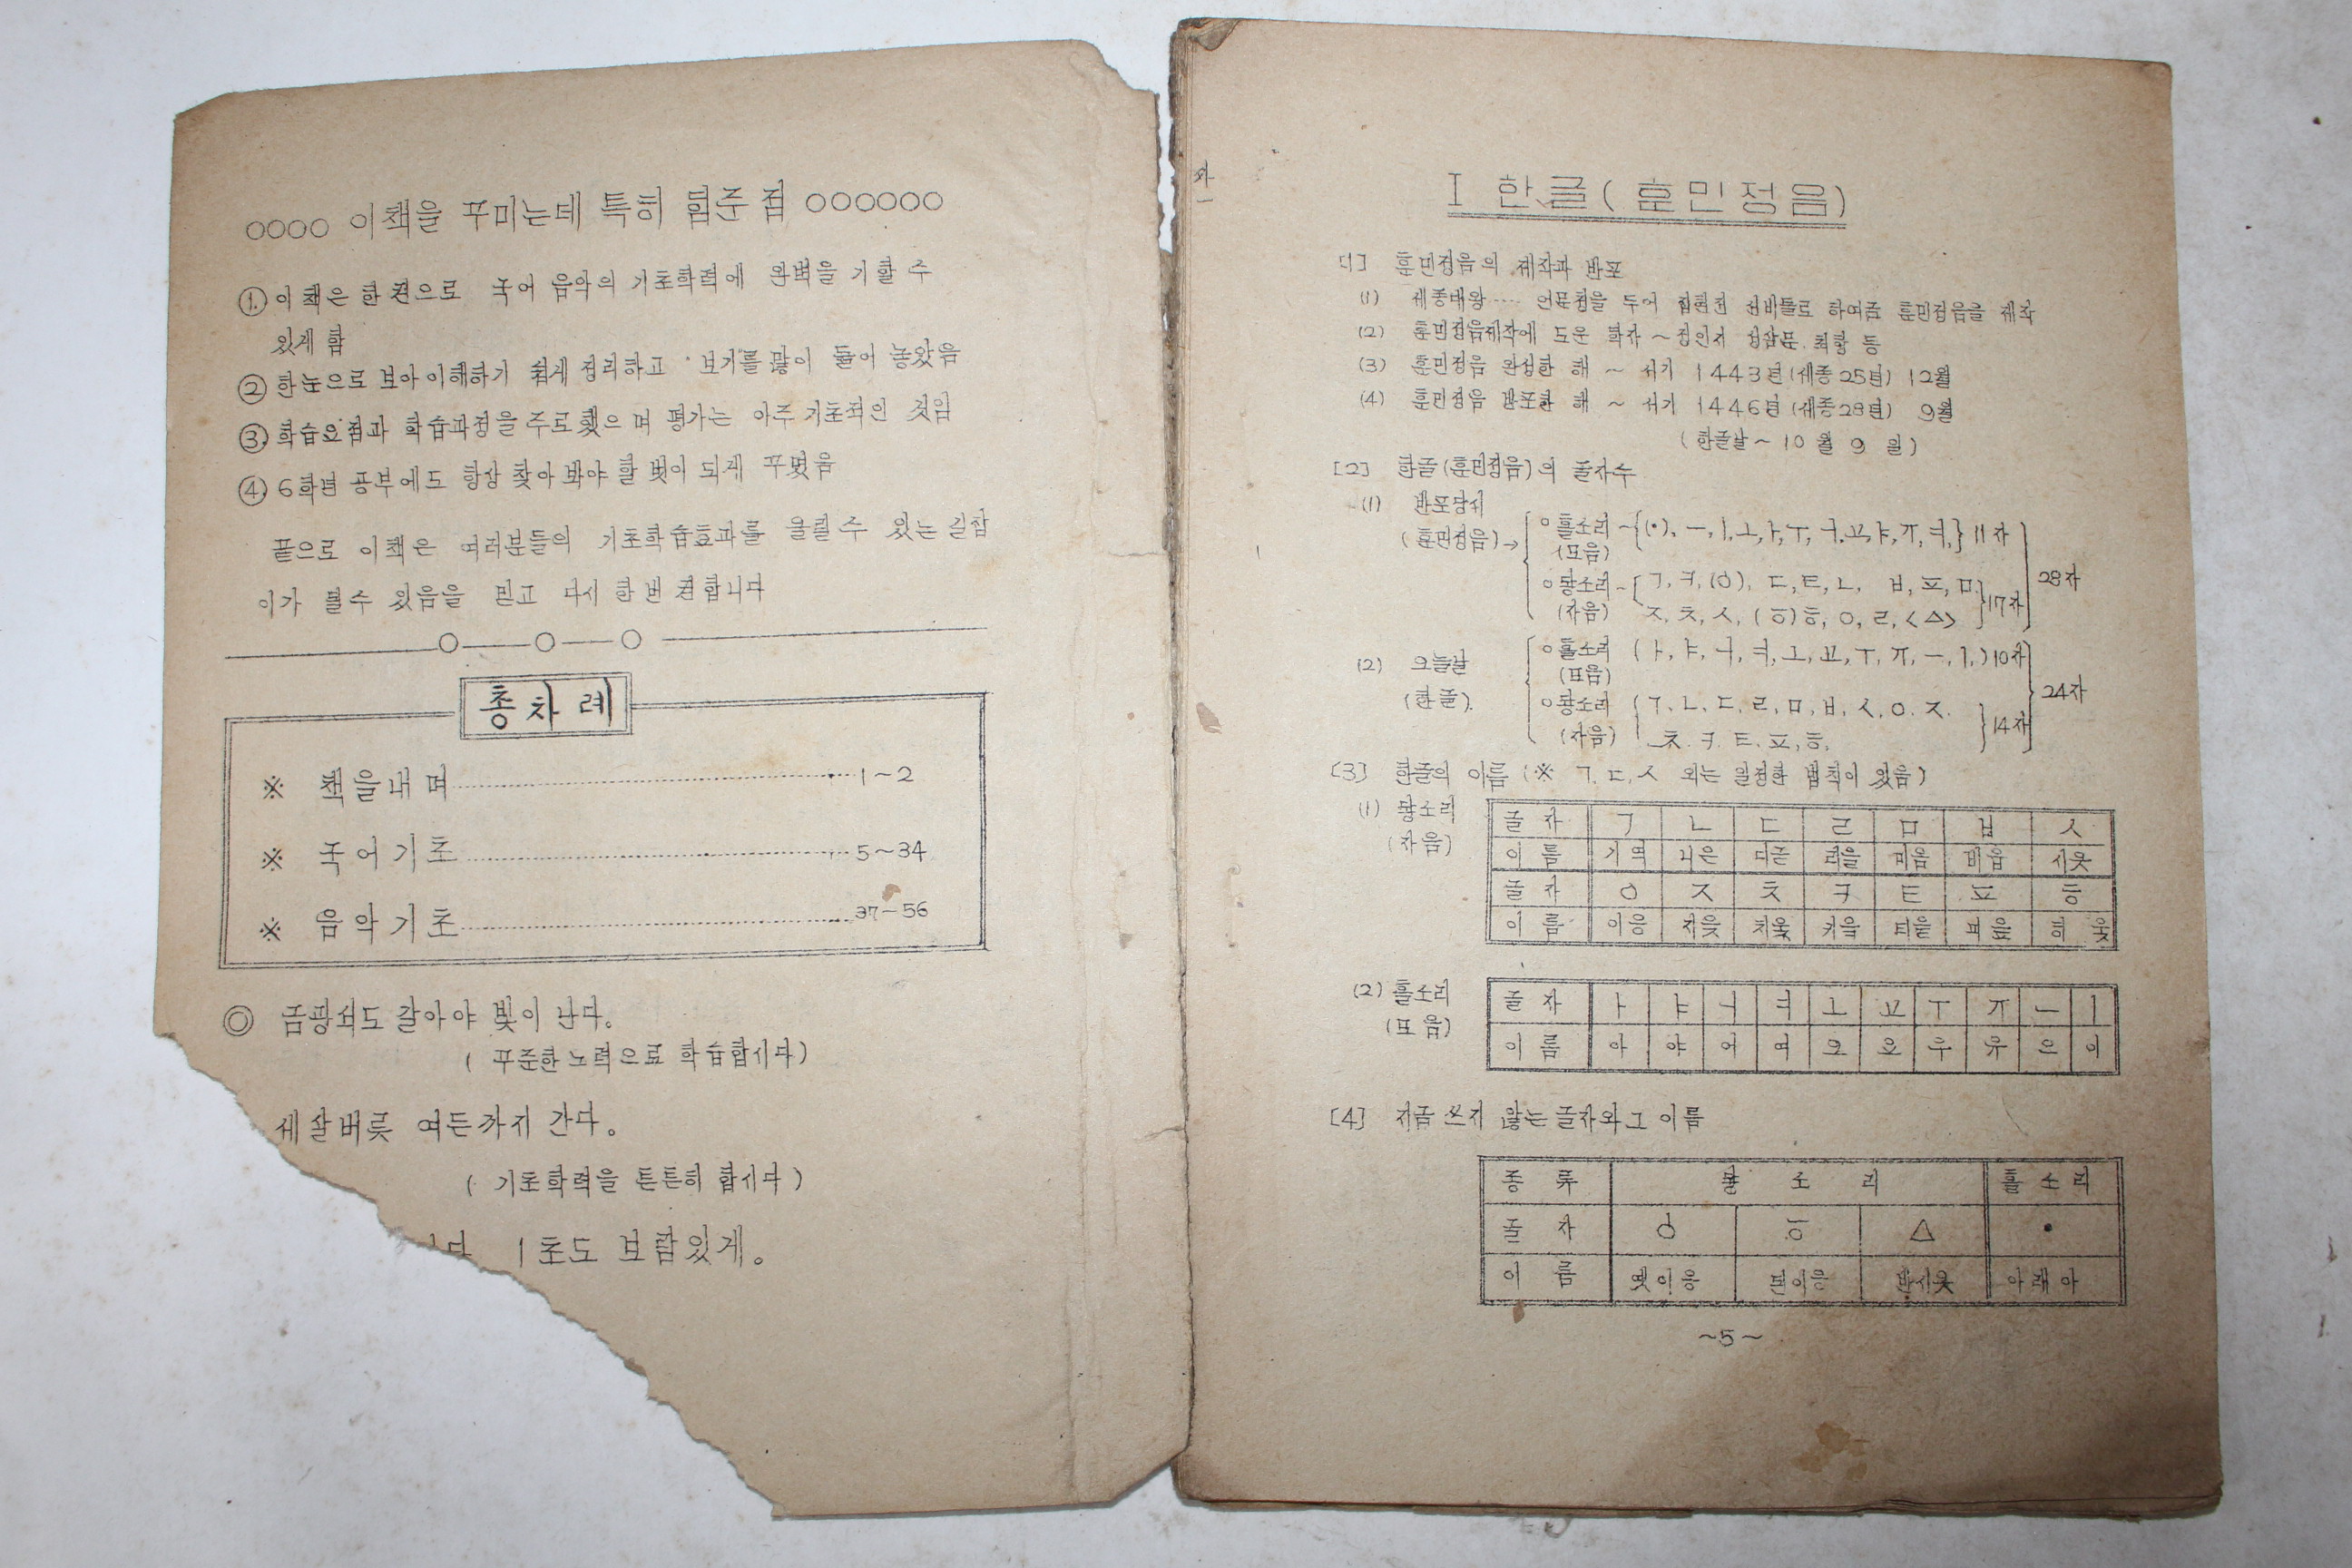 ○○○○ 이책을 꾸미는데 특히 힘준 점 ○○○○○○
① 이 책은 한 권으로 국어 음악의 기초학력에 완벽을 기할 수
있게 함
② 한눈으로 보아 이해하기 쉽게 정리하고 보기를 많이 들어 놓았음
③ 학습요점과 학습과정을 주로했으며 평가는 아주 기초적인 것임
④ 6학년 공부에도 항상 찾아 봐야 할 벗이 되게 꾸몄음
끝으로 이책은 여러분들의 기초학습효과를 올릴수 있는 길잡
이가 될수 있음을 믿고 다시 한번 권합니다
총차례
※ 책을내며 1~2
※ 국어기초 5~34
※ 음악기초 37~56
◎ 금광석도 갈아야 빛이 난다。
( 꾸준한 노력으로 학습합시다)
세살버릇 여든까지 간다。
( 기초학력을 튼튼히 합시다 )
1초도 보람있게。
I 한글 ( 훈민정음)
[1] 훈민정음의 제작과 반포
(1) 세종대왕 ···· 언문청을 두어 집현전 선비들로 하여금 훈민정음을 제작
(2) 훈민정음제작에 도운 학자 ~ 정인지 성삼문. 최항 등
(3) 훈민정음 완성한 해 ~ 서기 1443년 (세종25년) 12월
(4) 훈민정음 반포한 해 ~ 서기 1446년 (세종28년) 9월
( 한글날 ~ 10 월 9 일 )
[2] 한글(훈민정음)의 글자수
(1) 반포당시
(훈민정음)→
○홀소리 ~{(·), ㅡ, ㅣ, ㅗ, ㅏ, ㅜ, ㅓ, ㅛ, ㅑ, ㅠ, ㅕ,} 11자
(모음)
28자
○닿소리 ~{ㄱ, ㅋ, (ㆁ), ㄷ, ㅌ, ㄴ, ㅂ, ㅍ, ㅁ,
(자음) ㅈ, ㅊ, ㅅ, (ㆆ)ㅎ, ㅇ, ㄹ, <ㅿ> }17자
(2) 오늘날
(한글).
○홀소리 (ㅏ, ㅑ, ㅓ, ㅕ, ㅗ, ㅛ, ㅜ, ㅠ, ㅡ, ㅣ,)10자
(모음)
24자
○닿소리 (ㄱ, ㄴ, ㄷ, ㄹ, ㅁ, ㅂ, ㅅ, ㅇ. ㅈ.
(자음) ㅊ. ㅋ. ㅌ. ㅍ, ㅎ, }14자
[3] 한글의 이름 (※ ㄱ. ㄷ, ㅅ 외는 일정한 법칙이 있음)
(1) 닿소리
(자음)
글 자 ㄱ ㄴ ㄷ ㄹ ㅁ ㅂ ㅅ
이 름 기역 니은 디귿 리을 미음 비읍 시옷
글 자 ㅇ ㅈ ㅊ ㅋ ㅌ ㅍ ㅎ
이 름 이응 지읒 치읓 키읔 티읕 피읖 히읗
(2) 홀소리
(모음)
글 자 ㅏ ㅑ ㅓ ㅕ ㅗ ㅛ ㅜ ㅠ ㅡ ㅣ
이 름 아 야 어 여 오 요 우 유 으 이
[4] 지금 쓰지 않는 글자와 그 이름
종 류 닿 소 리 홀 소 리
글 자 ㆁ ㆆ ㅿ ·
이 름 옛이응 된이응 반시옷 아래아
~5~